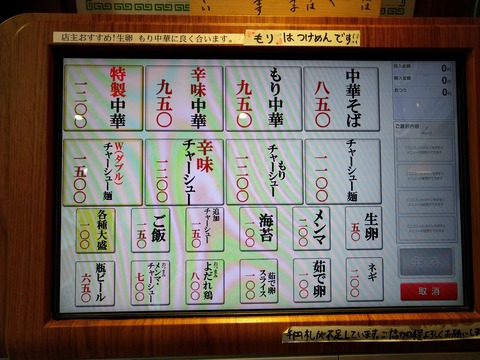 店主おすすめ!生卵 もり中華に良く合います。
もりはつけめんです!!
中華そば
八五〇
もり中華
九五〇
辛味中華
九五〇
特製中華
一二〇〇
チャーシュー麺
一一〇〇
もりチャーシュー
一二〇〇
辛味チャーシュー
一二〇〇
W(ダブル)チャーシュー麺
一五〇〇
生卵
五〇
メンマ
二〇〇
海苔
一〇〇
追加チャーシュー
一五〇
ご飯
一五〇
各種大盛
一〇〇
ネギ
二〇〇
茹で卵
一〇〇
茹で卵スライス
一〇〇
おつまみ
よだれ鶏
八〇〇
おつまみ
メンマ・チャーシュー
七〇〇
瓶ビール
六五〇
投入金額 0円
購入金額 0円
おつり 0円
ご選択内容
取消
千円札が不足しています。ご協力の程よろしくお願いしま